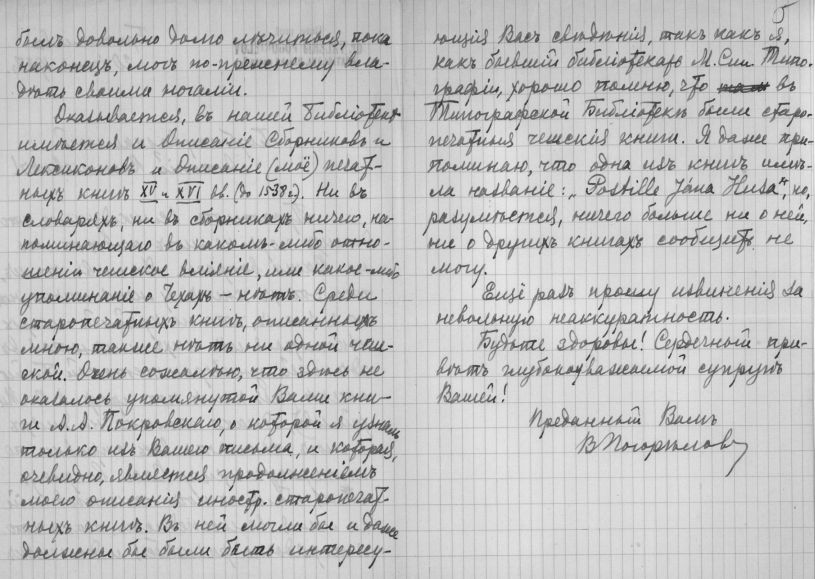 былъ довольно долго лѣчиться, пока
наконецъ, могъ по-прежнему вла-
дѣть своими ногами.
Оказывается, въ нашей библіотекѣ
имѣется и Описаніе Сборниковъ и
Лексиконовъ и Описаніе (моё) печат-
ныхъ книгъ XV и XVI вв. (до 1538 г.). Ни въ
словаряхъ, ни въ сборникахъ ничего, на-
поминающаго въ какомъ-либо отно-
шеніи чешское вліяніе, или какое-либо
упоминаніе о Чехахъ – нѣтъ. Среди
старопечатныхъ книгъ, описанныхъ
мною, также нѣтъ ни одной чеш-
ской. Очень сожалѣю, что здѣсь не
оказалось упомянутой Вами кни-
ги А.А. Покровскаго, о которой я узналъ
только изъ Вашего письма, и которая,
очевидно, является продолженіемъ
моего описанія иностр. старопечат-
ныхъ книгъ. Въ ней могли бы и даже
должны бы были быть интересу-
5
ющія Васъ свѣдѣнія, такъ какъ я,
какъ бывшій библіотекарь М. Син. Типо-
графіи, хорошо помню, что въ
Типографской Библіотекѣ были старо-
печатныя чешскія книги. Я даже при-
поминаю, что одна изъ книгъ имѣ-
ла названіе: „Postille Jána Husa“, но,
разумѣется, ничего больше ни о ней,
ни о другихъ книгахъ сообщить не
могу.
Ещё разъ прошу извиненія за
невольную неаккуратность.
Будьте здоровы! Сердечный при-
вѣтъ глубокоуважаемой супругѣ
Вашей!
Преданный Вамъ
В Погорѣловъ